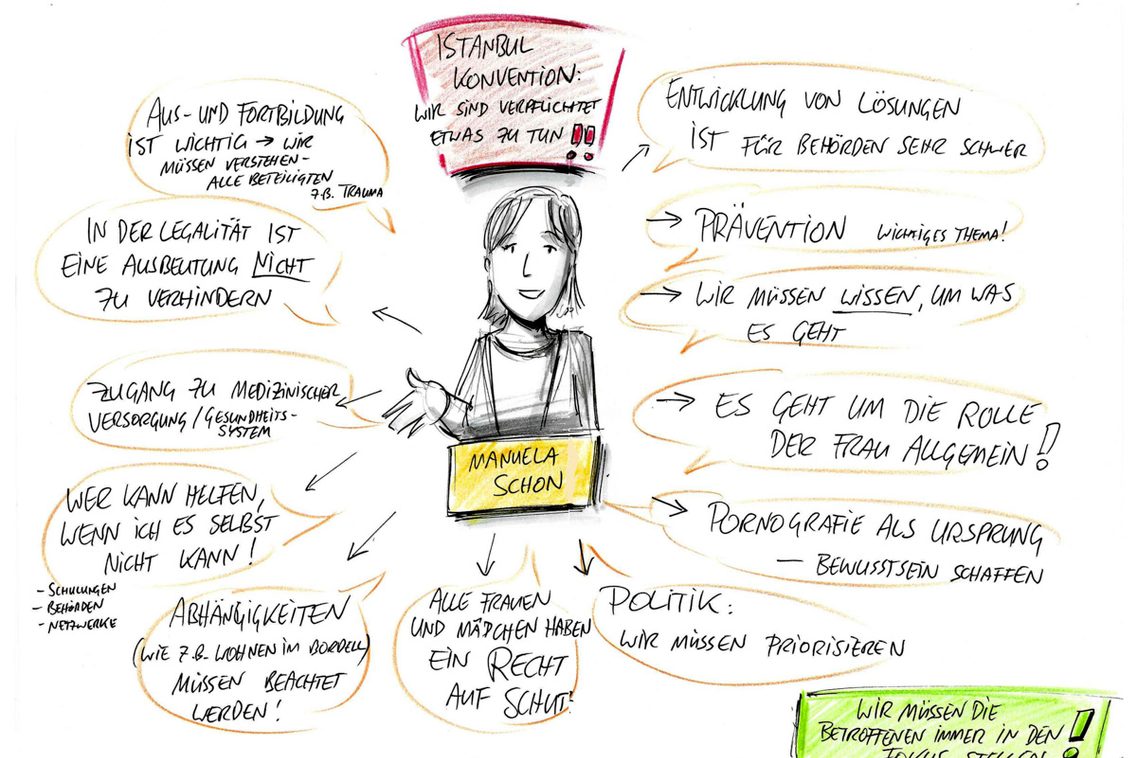 ISTANBUL
KONVENTION:
WIR SIND VERPFLICHTET
ETWAS ZU TUN!!
AUS- UND FORTBILDUNG
IST WICHTIG → WIR
MÜSSEN VERSTEHEN -
ALLE BETEILIGTEN
z.B. TRAUMA
IN DER LEGALITÄT IST
EINE AUSBEUTUNG NICHT
ZU VERHINDERN
ZUGANG ZU MEDIZINISCHER
VERSORGUNG/GESUNDHEITS-
SYSTEM
WER KANN HELFEN,
WENN ICH ES SELBST
NICHT KANN!
- SCHULUNGEN
- BEHÖRDEN
- NETZWERKE
ABHÄNGIGKEITEN
(WIE z.B. WOHNEN IM BORDELL)
MÜSSEN BEACHTET
WERDEN!
MANUELA
SCHON
ALLE FRAUEN
UND MÄDCHEN HABEN
EIN RECHT
AUF SCHUTZ!
ENTWICKLUNG VON LÖSUNGEN
IST FÜR BEHÖRDEN SEHR SCHWER
→ PRÄVENTION WICHTIGES THEMA!
→ WIR MÜSSEN WISSEN, UM WAS
ES GEHT
→ ES GEHT UM DIE ROLLE
DER FRAU ALLGEMEIN!
→ PORNOGRAFIE ALS URSPRUNG
- BEWUSSTSEIN SCHAFFEN
POLITIK:
WIR MÜSSEN PRIORISIEREN
WIR MÜSSEN DIE
BETROFFENEN IMMER IN DEN
FOKUS STELLEN!